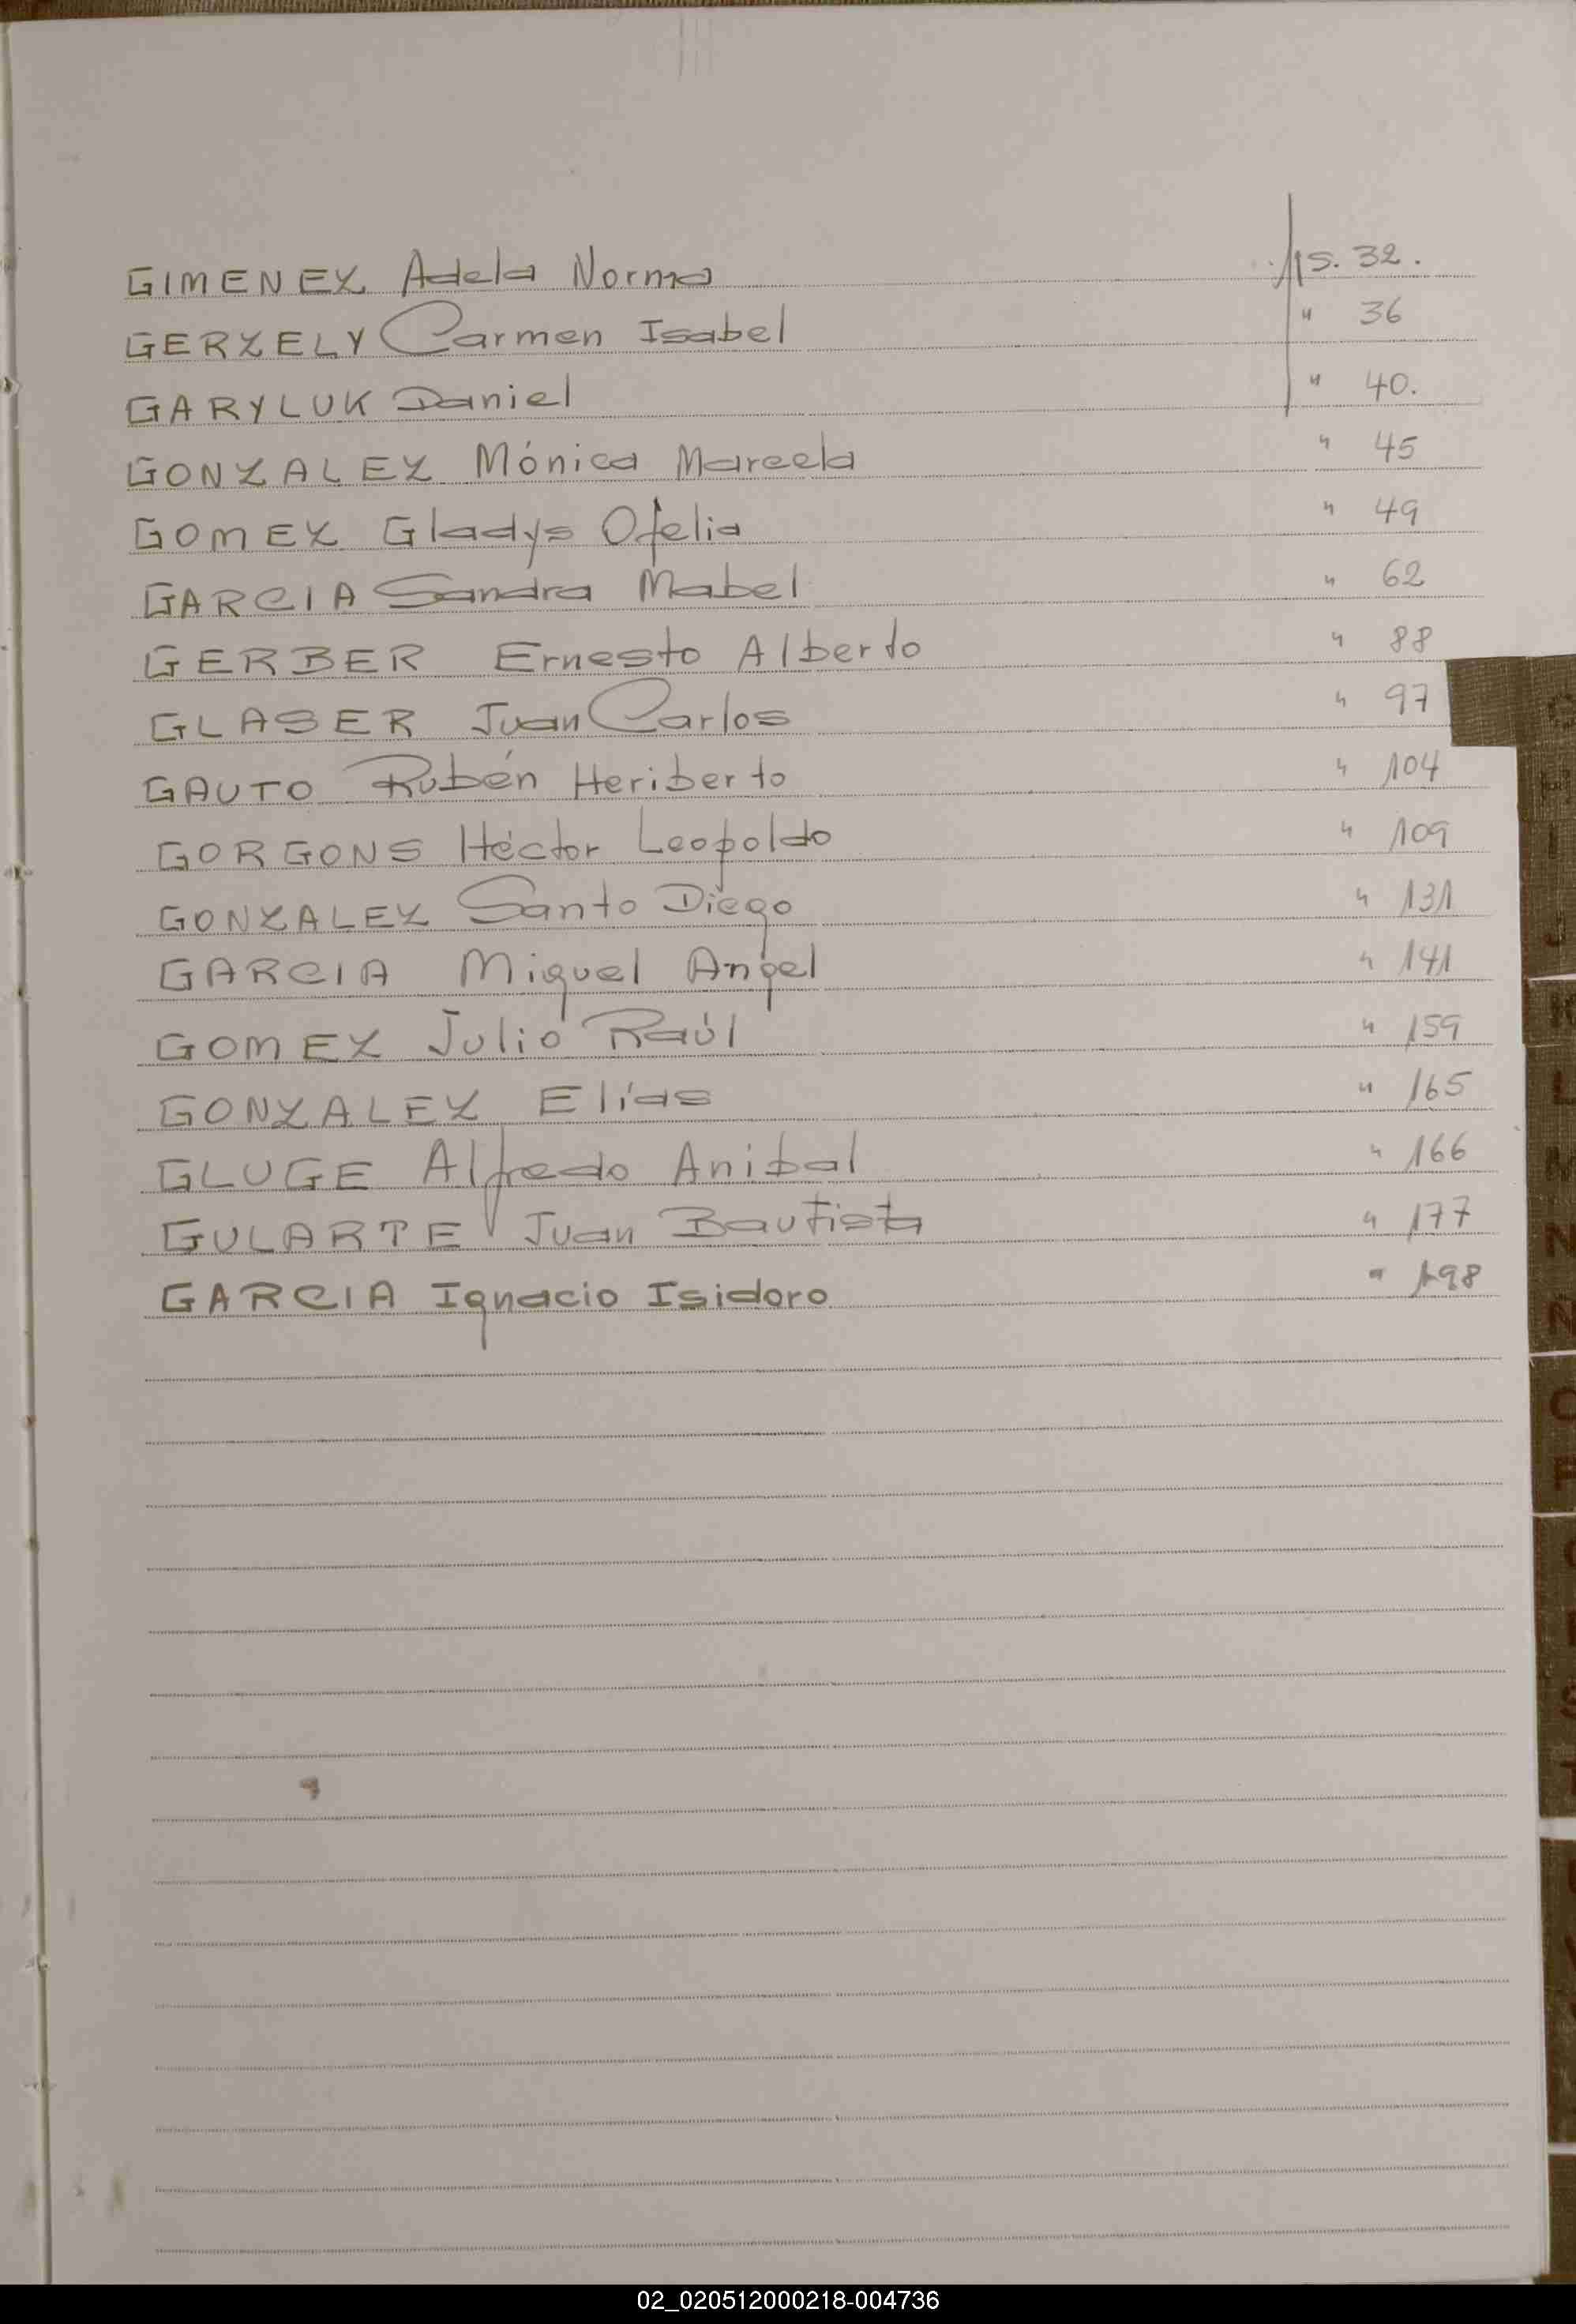 GIMENEZ Adela Norma fs. 32.
GERZELY Carmen Isabel " 36
GARYLUK Daniel " 40.
GONZALEZ Mónica Marcela " 45
GOMEZ Gladys Ofelia " 49
GARCIA Sandra Mabel " 62
GERBER Ernesto Alberto " 88
GLASER Juan Carlos " 97
GAUTO Rubén Heriberto " 104
GORGONS Héctor Leopoldo " 109
GONZALEZ Santo Diego " 131
GARCIA Miguel Angel " 141
GOMEZ Julio Raúl " 159
GONZALEZ Elías " 165
GLUGE Alfredo Anibal " 166
GULARTE Juan Bautista " 177
GARCIA Ignacio Isidoro " 198
02_020512000218-004736